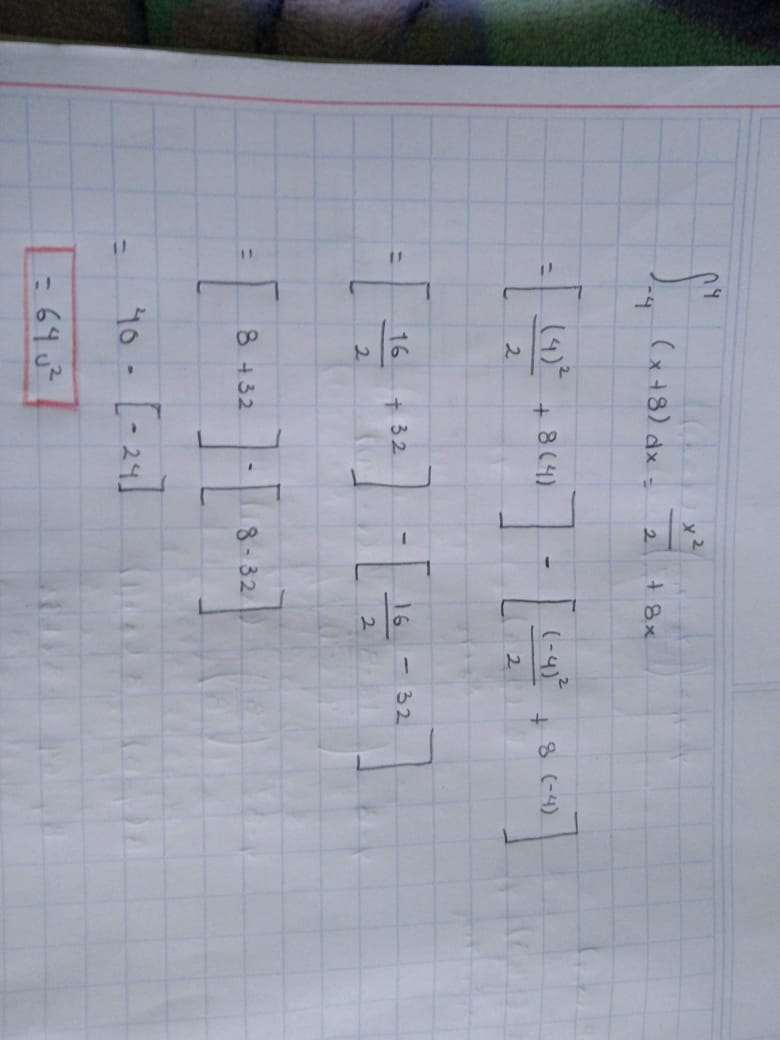 ∫₋₄⁴ (x+8) dx = x²/2 + 8x
= [ (4)²/2 + 8(4) ] - [ (-4)²/2 + 8 (-4) ]
= [ 16/2 + 32 ] - [ 16/2 - 32 ]
= [ 8 + 32 ] - [ 8 - 32 ]
= 40 - [-24]
= 64 u²